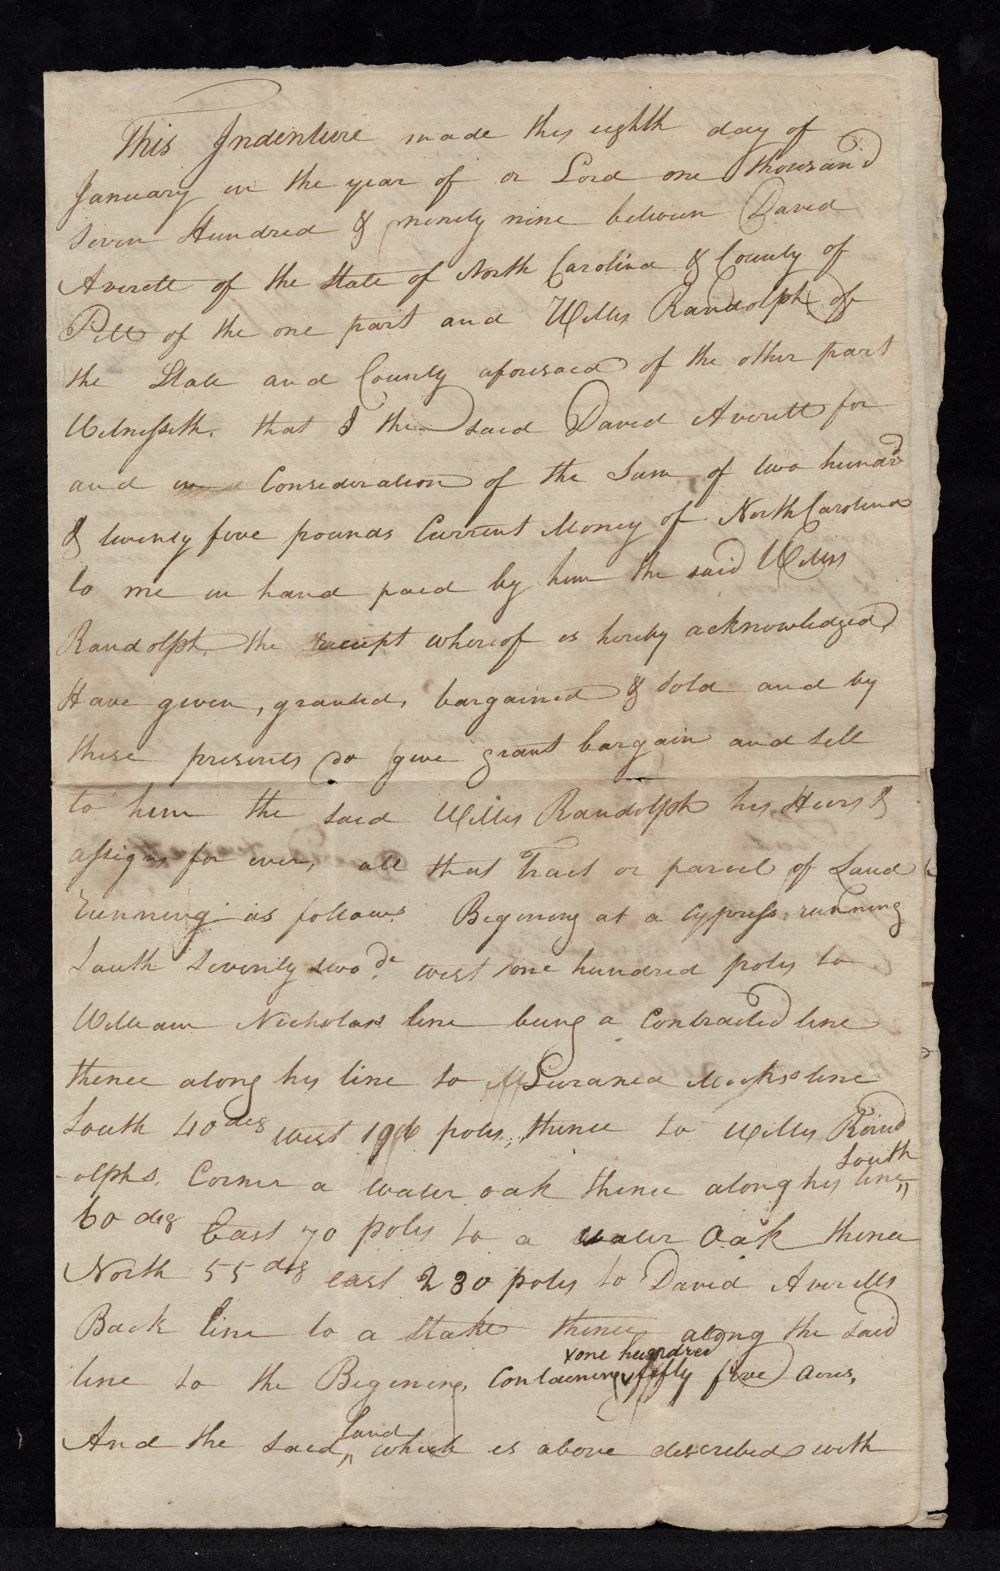 This Indenture made this eighth day of
January in the year of or Lord one thousand
seven Hundred & ninety nine between David
Averett of the State of North Carolina & County of
Pitt of the one part and Willis Randolph of
the State and County aforesaid of the other part
Witnesseth. that I the said David Averett for
and in Consideration of the Sum of two hundrd
& twenty five pounds Current Money of North Carolina
to me in hand paid by him the said Willis
Randolph, the receipt whereof is hereby acknowledged,
Have given, granted, bargained & sold and by
these presents do give grant bargain and sell
to him the said Willis Randolph his Heirs &
assigns for ever, all that Tract or parcel of Land
running as follows Begining at a Cypress running
South seventy two de. west one hundred poles to
William Nicholas line being a Contracted line
thence along his line to Meeks line
South 40 deg west poles, thence to Willis Rand
-olphs, Corner a water oak thence along his line, South
60 deg East 70 poles to a water Oak thence
North 55 deg east 230 poles to David Averetts
Back line to a Stake thence along the said
line to the Begining, Containing one hundred fifty five acres,
And the said land which is above described with